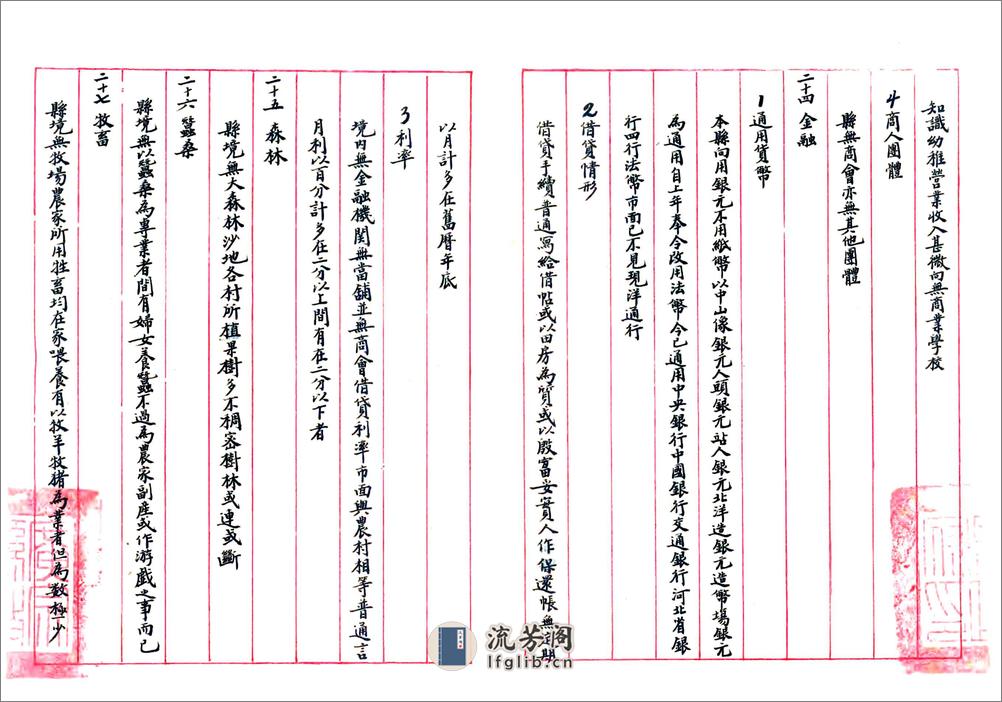 知識幼稚營業收入甚微向無商業學校
4商人團體
縣無商會亦無其他團體
二十四 金融
1通用貨幣
本縣向用銀元不用紙幣以中山像銀元人頭銀元站人銀元北洋造銀元造幣場銀元
為通用自上年奉令改用法幣今已通用中央銀行中國銀行交通銀行河北省銀
行四行法幣市面已不見現洋通行
2借貸情形
借貸手續普通寫給借帖或以田房為質或以殷富妥實人作保還帳無定期
以月計多在舊曆年底
3利率
境內無金融機関無當舖並無商會借貸利率市面與農村相等普通言
月利以百分計多在二分以上間有在二分以下者
二十五 森林
縣境無大森林沙地各村所植果樹多不稠密樹林或連或斷
二十六 蠶桑
縣境無以蠶桑為專業者間有婦女養蠶不過為農家副產或作游戲之事而已
二十七 牧畜
縣境無牧場農家所用牲畜均在家喂養有以牧羊牧猪為業者但為数極少
流芳閣
lfglib.cn